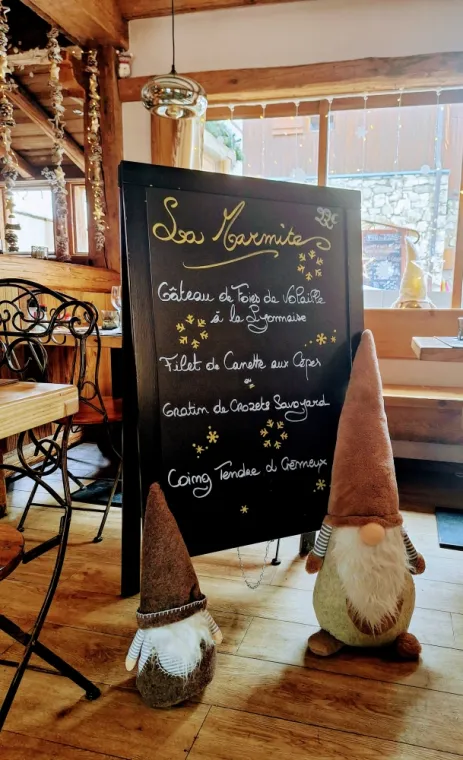 La Marmite 33€
Gâteau de Foies de Volaille
à la Lyonnaise
Filet de Canette aux Cèpes
Gratin de Crozets Savoyard
Coing Tendre & Crémeux